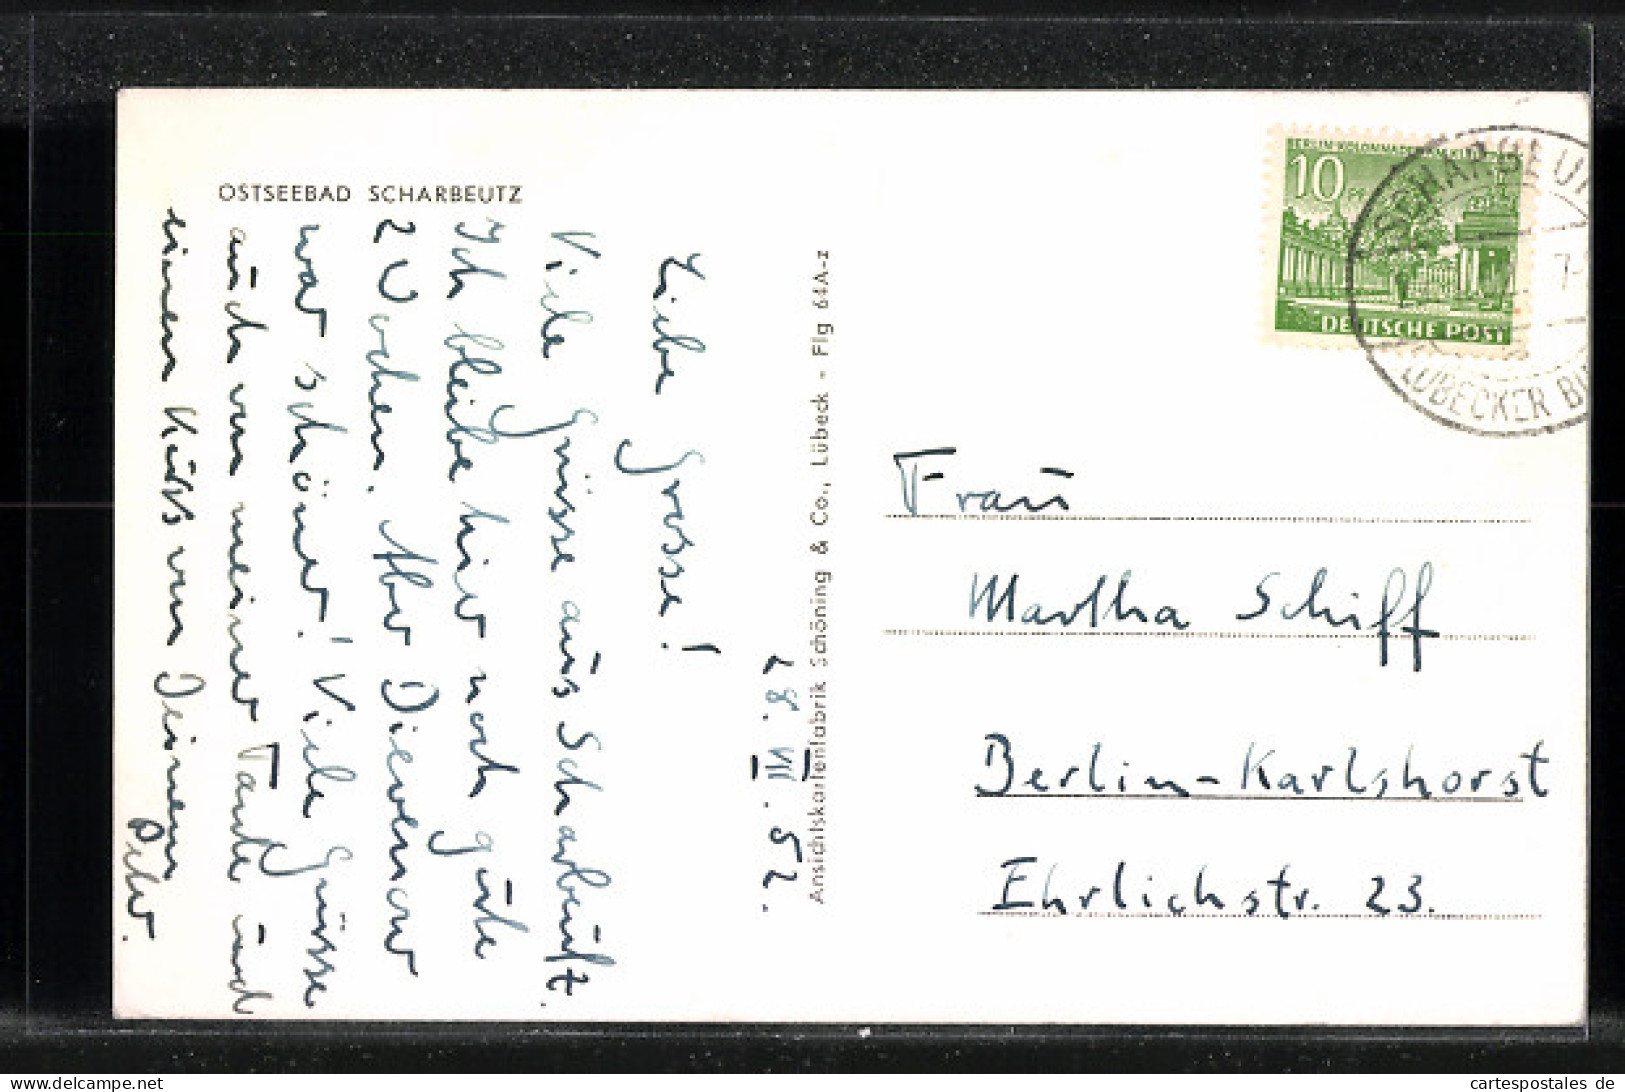 OSTSEEBAD SCHARBEUTZ
28. VII. 52.
Liebe Grosse!
Viele Grüsse aus Scharbeutz.
Ich bleibe hier noch gute
2 Wochen. Aber Dievenow
war schöner! Viele Grüsse
auch von meiner Tante und
einen Kuss von Deinem
Peter.
Ansichtskartenfabrik Schöning & Co., Lübeck - Flg 64A-z
BERLIN-KOLONNADEN AM KL
10 Pf
DEUTSCHE POST
SCHARBEU
7-
LÜBECKER BU
Frau
Martha Schiff
Berlin-Karlshorst
Ehrlichstr. 23.
cartespostales de
www.delcampe.net